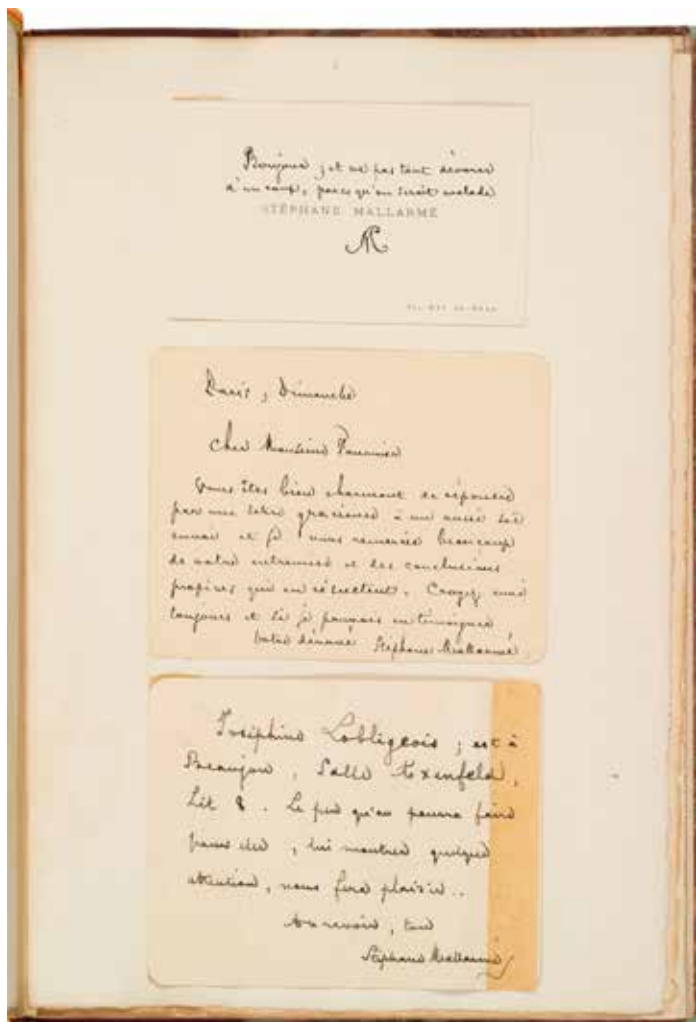 Bonjour ; et ne pas tant dévorer
d'un coup, parce qu'on serait malade
STÉPHANE MALLARMÉ
SM
Paris, Dimanche
Cher Monsieur
Vous êtes bien charmant de répondre
par une lettre gracieuse à un aussi
envoi et je vous remercie beaucoup
de votre entremise et des conclusions
propices qui en résultent. Croyez moi
toujours et si je pouvais en témoigner,
votre dévoué Stéphane Mallarmé
Joséphine Lobligeois ; est à
Beaujon, Salle Axenfeld,
Lit 8. Le peu qu'on pourra faire
pour elle, lui montrer quelque
attention, nous fera plaisir..
Au revoir,
Stéphane Mallarmé